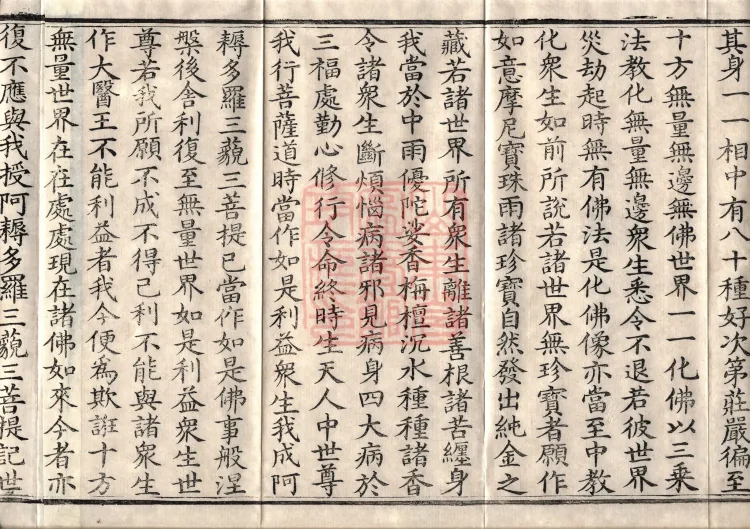 其身一一相中有八十種好次第莊嚴徧至
十方無量無邊無佛世界一一化佛以三乘
法教化無量無邊衆生悉令不退若彼世界
災劫起時無有佛法是化佛像亦當至中教
化衆生如前所說若諸世界無珍寶者願作
如意摩尼寶珠雨諸珍寶自然發出純金之
藏若諸世界所有衆生離諸善根諸苦纏身
我當於中雨優陀娑香栴檀沉水種種諸香
令諸衆生斷煩惱病諸邪見病身四大病於
三福處勤心修行令命終時生天人中世尊
我行菩薩道時當作如是利益衆生我成阿
耨多羅三藐三菩提已當作如是佛事般涅
槃後舍利復至無量世界如是利益衆生世
尊若我所願不成不得己利不能與諸衆生
作大醫王不能利益者我今便為欺誑十方
無量世界在在處處現在諸佛如來今者亦
復不應與我授阿耨多羅三藐三菩提記世